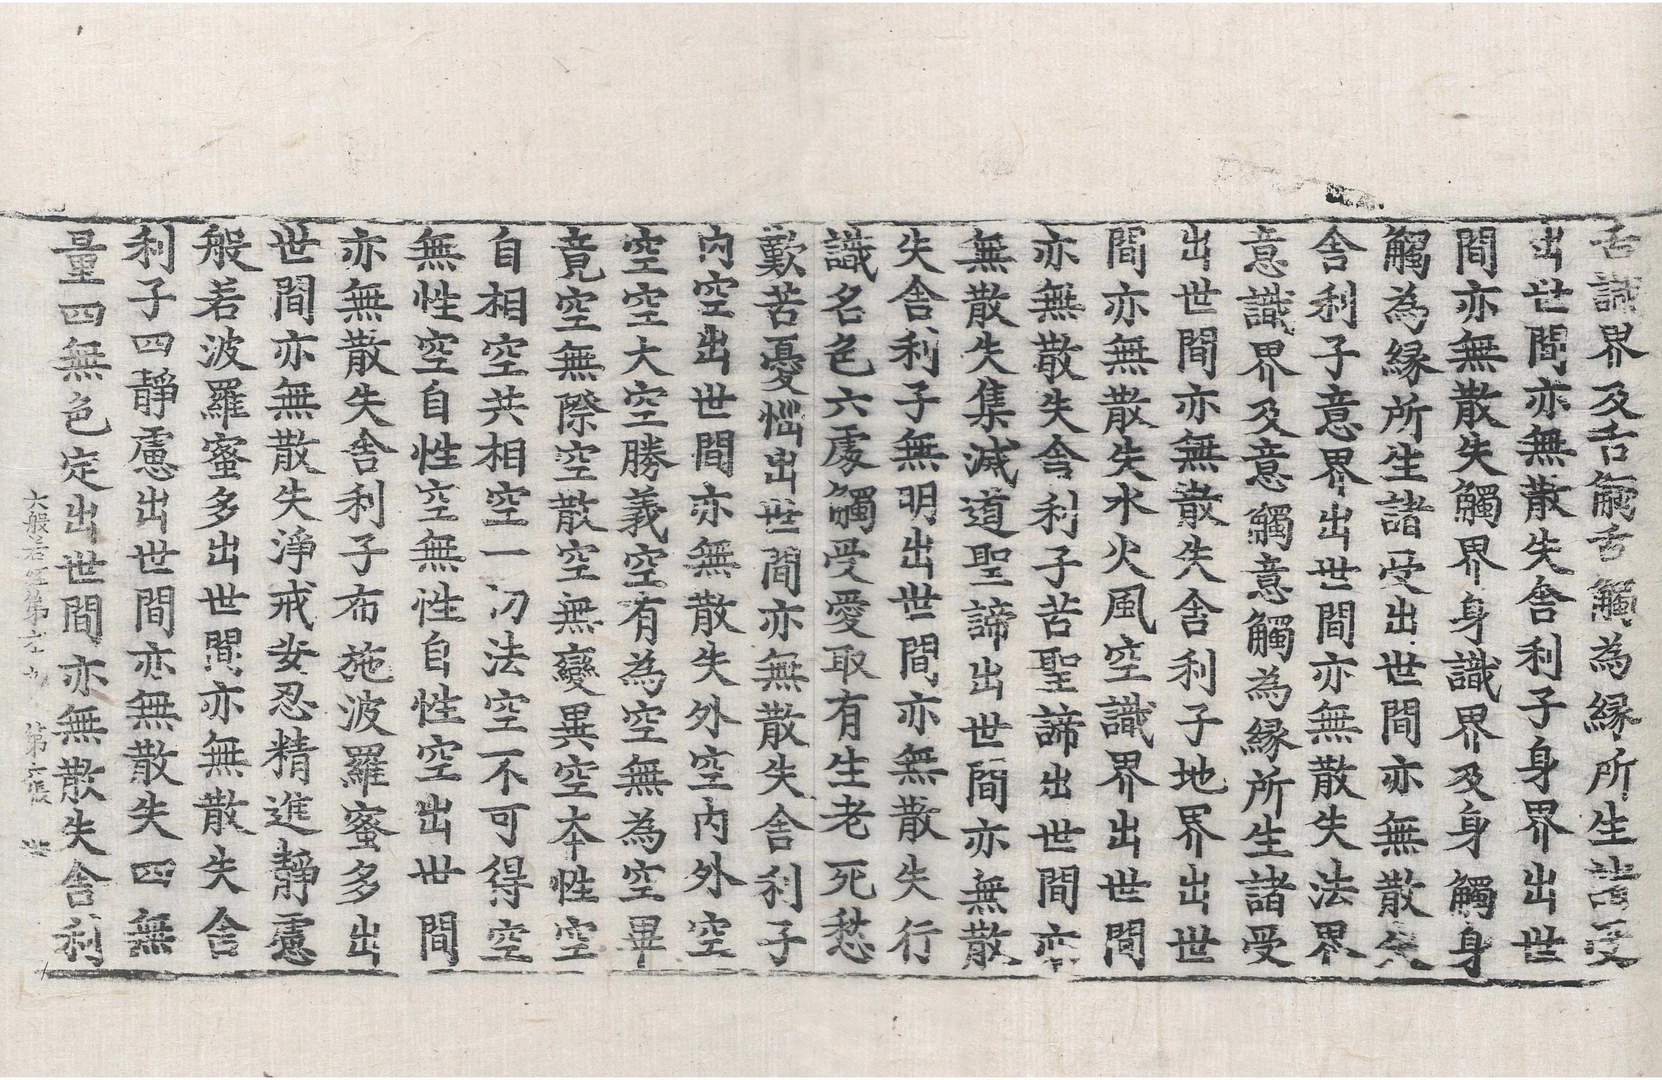 舌識界及舌觸舌觸為緣所生諸受
出世間亦無散失舍利子身界出世
間亦無散失觸界身識界及身觸身
觸為緣所生諸受出世間亦無散失
舍利子意界出世間亦無散失法界
意識界及意觸意觸為緣所生諸受
出世間亦無散失舍利子地界出世
間亦無散失水火風空識界出世間
亦無散失舍利子苦聖諦出世間亦
無散失集滅道聖諦出世間亦無散
失舍利子無明出世間亦無散失行
識名色六處觸受愛取有生老死愁
歎苦憂惱出世間亦無散失舍利子
內空出世間亦無散失外空內外空
空空大空勝義空有為空無為空畢
竟空無際空散空無變異空本性空
自相空共相空一切法空不可得空
無性空自性空無性自性空出世間
亦無散失舍利子布施波羅蜜多出
世間亦無散失淨戒安忍精進靜慮
般若波羅蜜多出世間亦無散失舍
利子四靜慮出世間亦無散失四無
量四無色定出世間亦無散失舍利
大般若經第六十 第六張